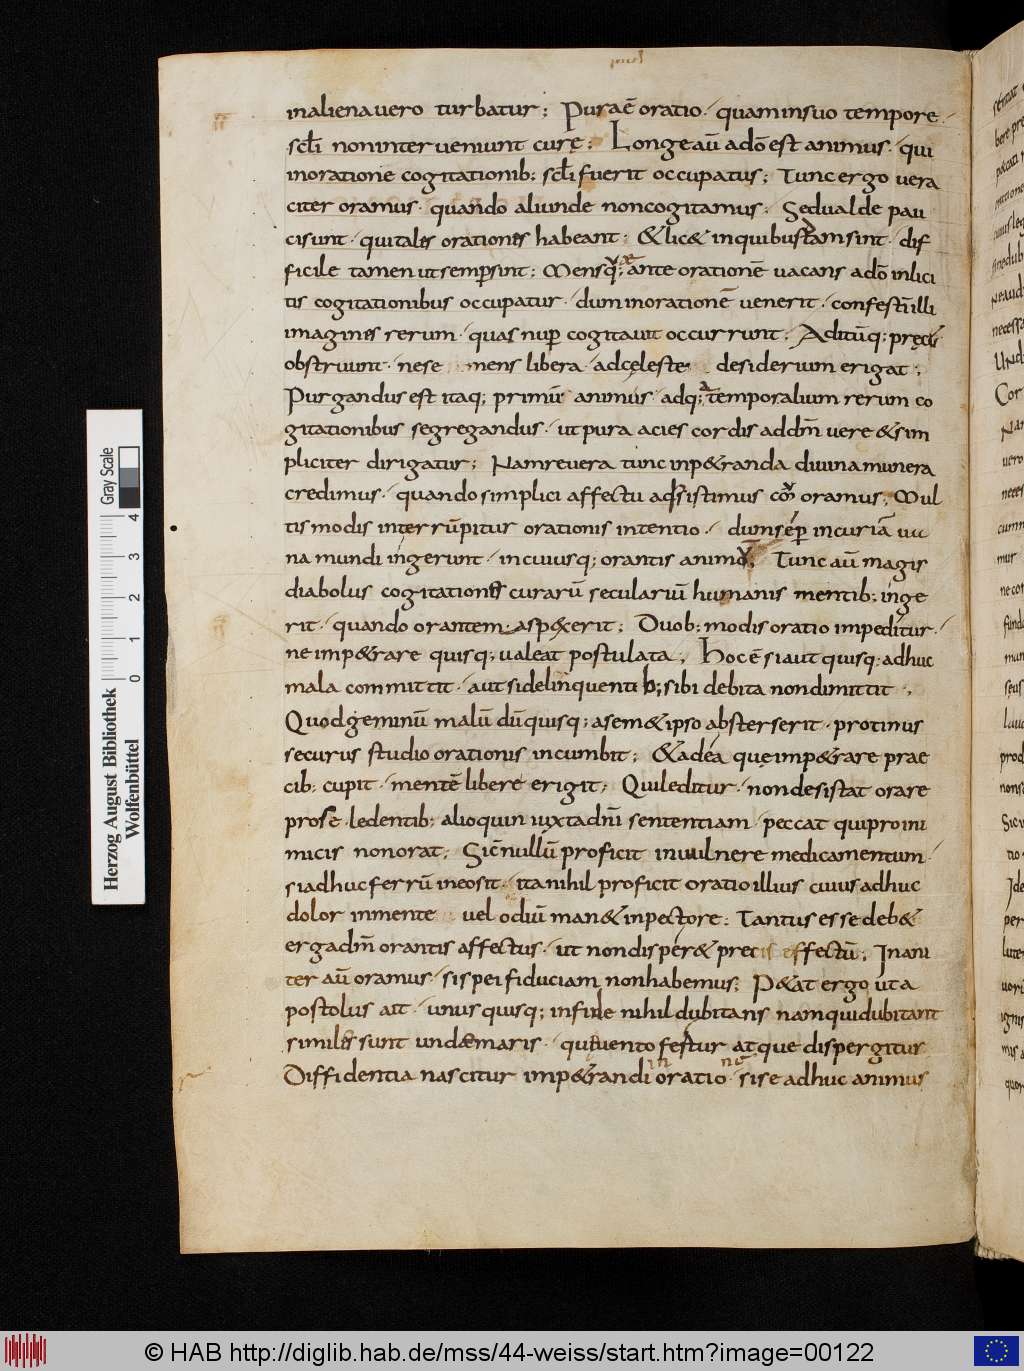 inaliena uero turbatur; Pura ē oratio · quam in suo tempore ·
sc̄li non interueniunt curę; Longe aū a dō est animus · qui
in oratione cogitationib; sc̄li fuerit occupatus; Tunc ergo uera
citer oramus · quando aliunde non cogitamus; Sed ualde pau
ci sunt · qui tales orationes habeant; & lic& in quibusdam sint · dif
ficile tamen ut semp sint; Mens q; ante orationē uacans a dō inlici
tis cogitationibus occupatur · dum in orationē uenerit · confestī illi
imagines rerum · quas nup cogitauit occurrunt; Aditūq; preci
obstruunt · ne se mens libera · ad cęleste desiderium erigat;
Purgandus est itaq; primū animus · adq; a temporalium rerum co
gitationibus segregandus · ut pura acies cordis ad dm̄ uere & sim
pliciter dirigatur; Nam reuera tunc inp&randa diuina munera
credimus · quando simplici affectu adsistimus cō oramus; Mul
tis modis interrūpitur orationis intentio · dum sēp incuriā
na mundi ingerunt · in cuiusq; orantis animo; Tunc aū magis
diabolus cogitationes curarū seculariū humanis mentib; inge
rit · quando orantem aspexerit; Duob; modis oratio impeditur ·
ne imp&rare quisq; ualeat postulata; Hoc ē si aut quisq; adhuc
mala committit · aut si delinquenti b; sibi debita non dimittit ·
Quod geminū malū dū quisq; a sem& ipso absterserit · protinus
securus studio orationis incumbit; & ad ea quę imp&rare prae
cib; cupit · mentē libere erigit; Qui leditur · non desistat orare
pro se ledentib; alioquin iuxta dn̄i sententiam · peccat qui pro ini
micis non orat; Sic nullū proficit in uulnere medicamentum ·
si adhuc ferrū in eo sit · ita nihil proficit oratio illius cuius adhuc
dolor in mente uel odiū man& in pectore; Tantus esse deb&
erga dm̄ orantis affectus · ut non disper& precis effectū; Inani
ter aū oramus · si spei fiduciam non habemus; P&at ergo ut a
postolus ait · unusquisq; in fide nihil dubitans nam qui dubitant
similes sunt undae maris · qui uento fertur atque dispergitur
Diffidentia nascitur imp&randi oratio · si se adhuc animus
Herzog August Bibliothek
Wolfenbüttel
Gray Scale
0 1 2 3 4
© HAB http://diglib.hab.de/mss/44-weiss/start.htm?image=00122